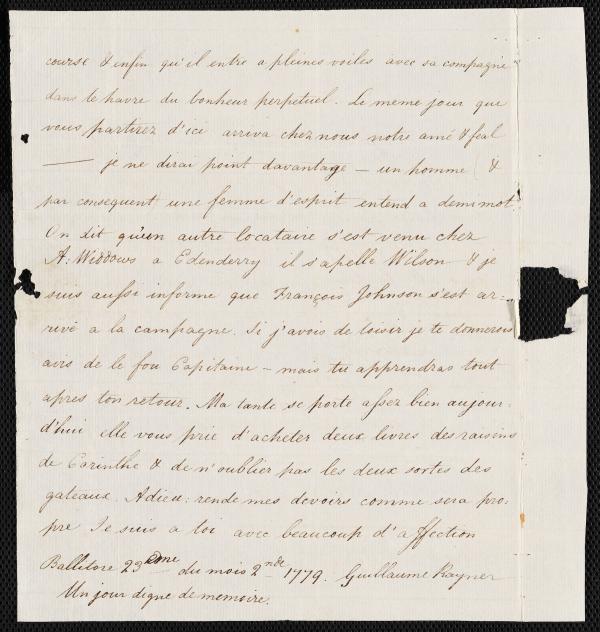 course & enfin qu'il entre a pleines voiles avec sa compagne
dans le havre du bonheur perpetuel. Le meme jour que
vous partirez d'ici arriva chez nous notre amé & feal
— je ne dirai point davantage — un homme (&
par consequent une femme d'esprit entend a demi mot
On dit qu'un autre locataire s'est venu chez
A: Widdows a Edenderry il s'apelle Wilson & je
suis aussi informe que François Johnson s'est ar:
rivé a la campagne. Si j'avois de loisir je te donnerois
avis de le fou Capitaine — mais tu apprendras tout
apres ton retour. Ma tante se porte assez bien aujour.
d'hui elle vous prie d'acheter deux livres des raisins
de Corinthe & de n'oublier pas les deux sortes des
gateaux. Adieu: rende mes devoirs comme sera pro:
pre Je suis a toi avec beaucoup d'affection
Ballitore 23 du mois 2nde 1779. Guillaume Rayner
Un jour digne de memoire.